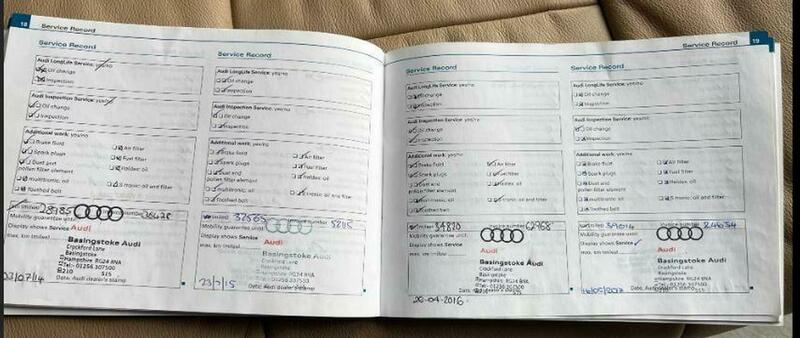 18
Service Record
Service Record
Audi LongLife Service: yes/no
Oil change
Inspection
Audi Inspection Service: yes/no
Oil change
Inspection
Additional work: yes/no
Brake fluid
Air filter
Spark plugs
Fuel filter
Dust and
pollen filter element
Haldex: oil
multitronic: oil
S tronic: oil and filter
Toothed belt
28785
Mobility guarantee until:
Display shows Service
max. km (miles)
Audi
Basingstoke Audi
Crockford Lane
Basingstoke
Hampshire RG24 8NA
Tel:- 01256 307500
B210 515
Date, Audi dealer's stamp
23/07/14
Service Record
Audi LongLife Service: yes/no
Oil change
Inspection
Audi Inspection Service: yes/no
Oil change
Inspection
Additional work: yes/no
Brake fluid
Air filter
Spark plugs
Fuel filter
Dust and
pollen filter element
Haldex: oil
multitronic: oil
S tronic: oil and filter
Toothed belt
32565
Mobility guarantee until:
Display shows Service
max. km (miles)
Audi
Basingstoke Audi
Crockford Lane
Basingstoke
Hampshire RG24 8NA
Date, Audi dealer's stamp
23/7/15
Service Record
19
Service Record
Audi LongLife Service: yes/no
Oil change
Inspection
Audi Inspection Service: yes/no
Oil change
Inspection
Additional work: yes/no
Brake fluid
Air filter
Spark plugs
Fuel filter
Dust and
pollen filter element
Haldex: oil
multitronic: oil
S tronic: oil and filter
Toothed belt
34820
62968
Mobility guarantee until:
Display shows Service
max. km (miles)
Audi
Basingstoke Audi
Crockford Lane
Basingstoke
Hampshire RG24 8NA
Date, Audi dealer's stamp
26-04-2016
Service Record
Audi LongLife Service: yes/no
Oil change
Inspection
Audi Inspection Service: yes/no
Oil change
Inspection
Additional work: yes/no
Brake fluid
Air filter
Spark plugs
Fuel filter
Dust and
pollen filter element
Haldex: oil
multitronic: oil
S tronic: oil and filter
Toothed belt
Mobility guarantee until:
Display shows Service
max. km (miles)
Audi
Basingstoke Audi
Crockford Lane
Basingstoke
Hampshire RG24 8NA
Date, Audi dealer's stamp